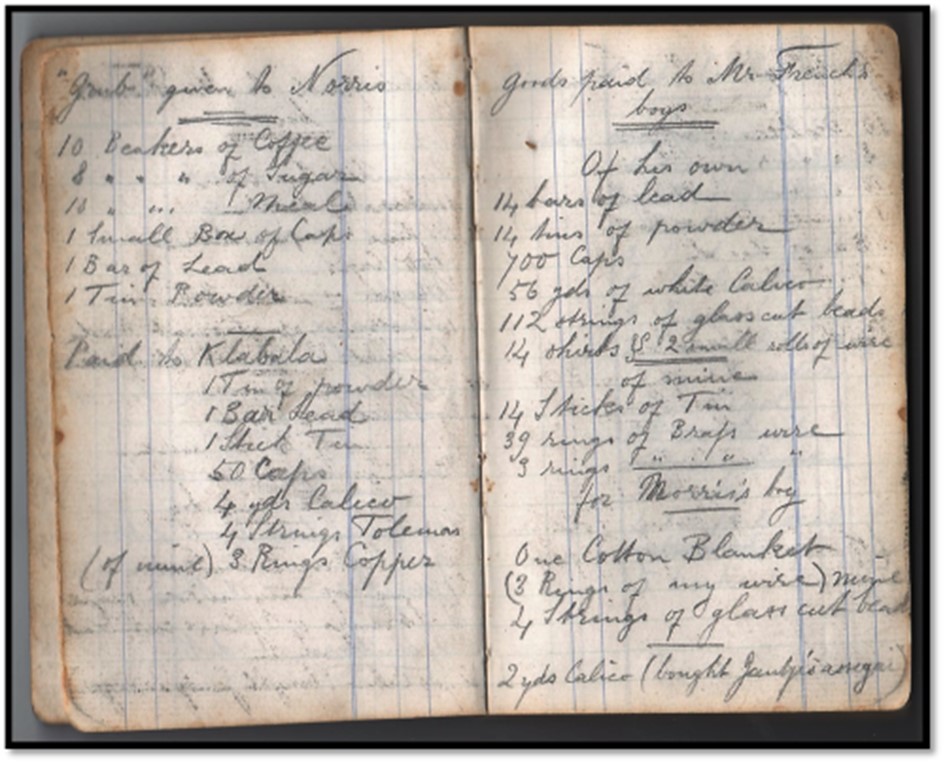 "Grub" given to Norris
10 Beakers of Coffee
8 " " " of Sugar
10 " " " Meal
1 Small Box of Caps
1 Bar of Lead
1 Tin Powder
Paid to Klabala
1 Tin of powder
1 Bar Lead
1 Stick Tin
50 Caps
4 yds Calico
4 Strings
(of mine) 3 Rings Copper
Goods paid to Mr French's
boys
Of his own
14 bars of lead
14 tins of powder
700 Caps
56 yds of white Calico
112 strings of glass cut beads
14 shirts & 2 small rolls of wire
of mine
14 Sticks of Tin
39 rings of Brass wire
3 rings " " "
for Morris's boy
One Cotton Blanket
(3 Rings of my wire) mine
4 Strings of glass cut bead
2 yds Calico (bought